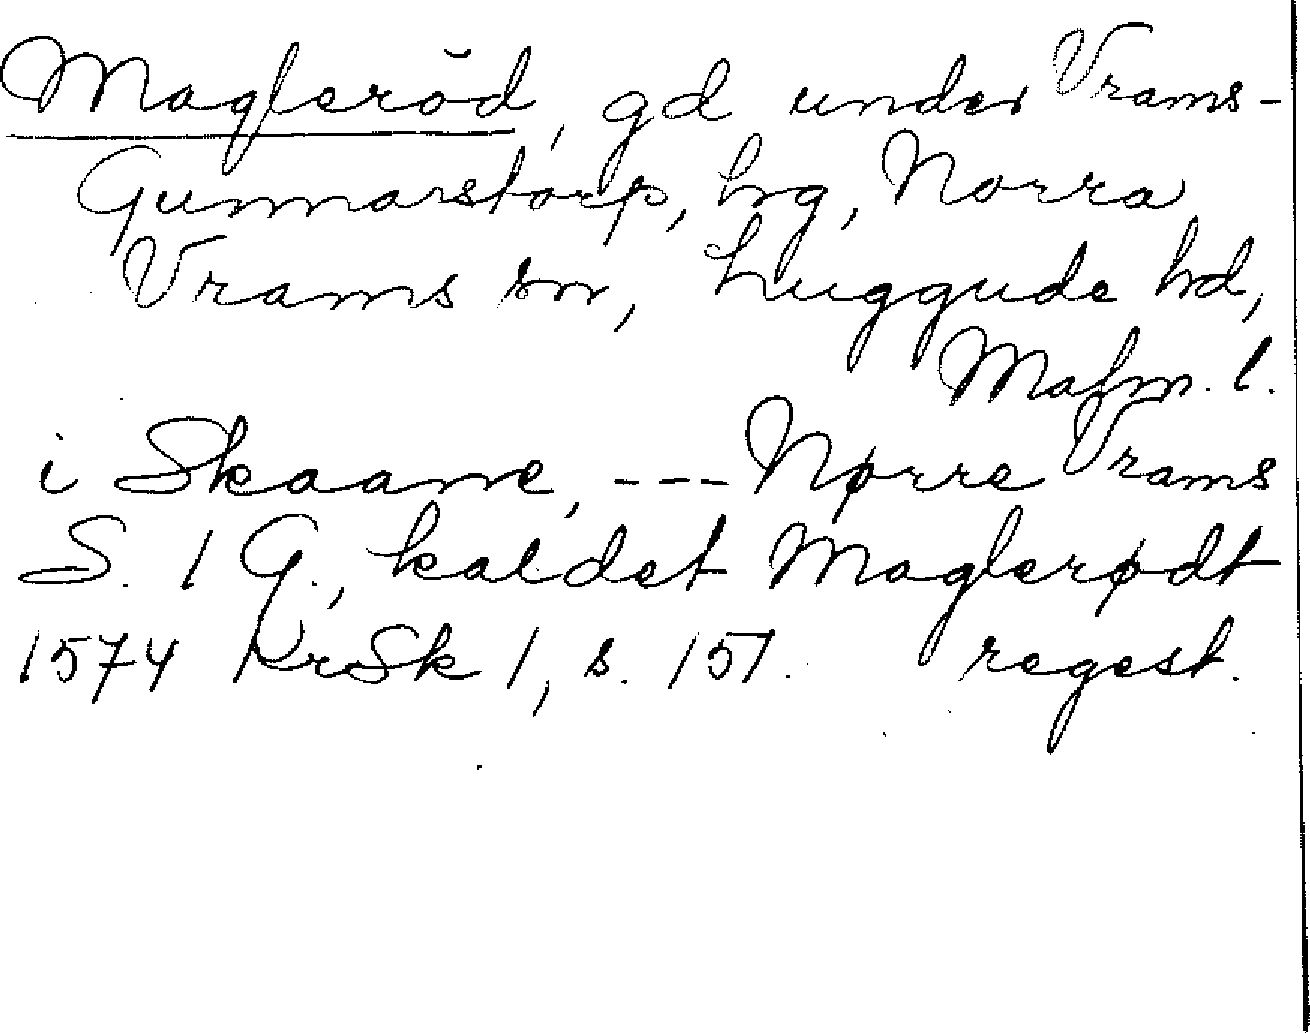 Magleröd, gd under Vrams-
Gunnarstorp, hg, Norra
Vrams sn, Luggude hd,
Mafm. l.
i Skaane, --- Nørre Vrams
S. 1 G., kaldet Maglerødt
1574 KrSk 1, s. 151. regest.